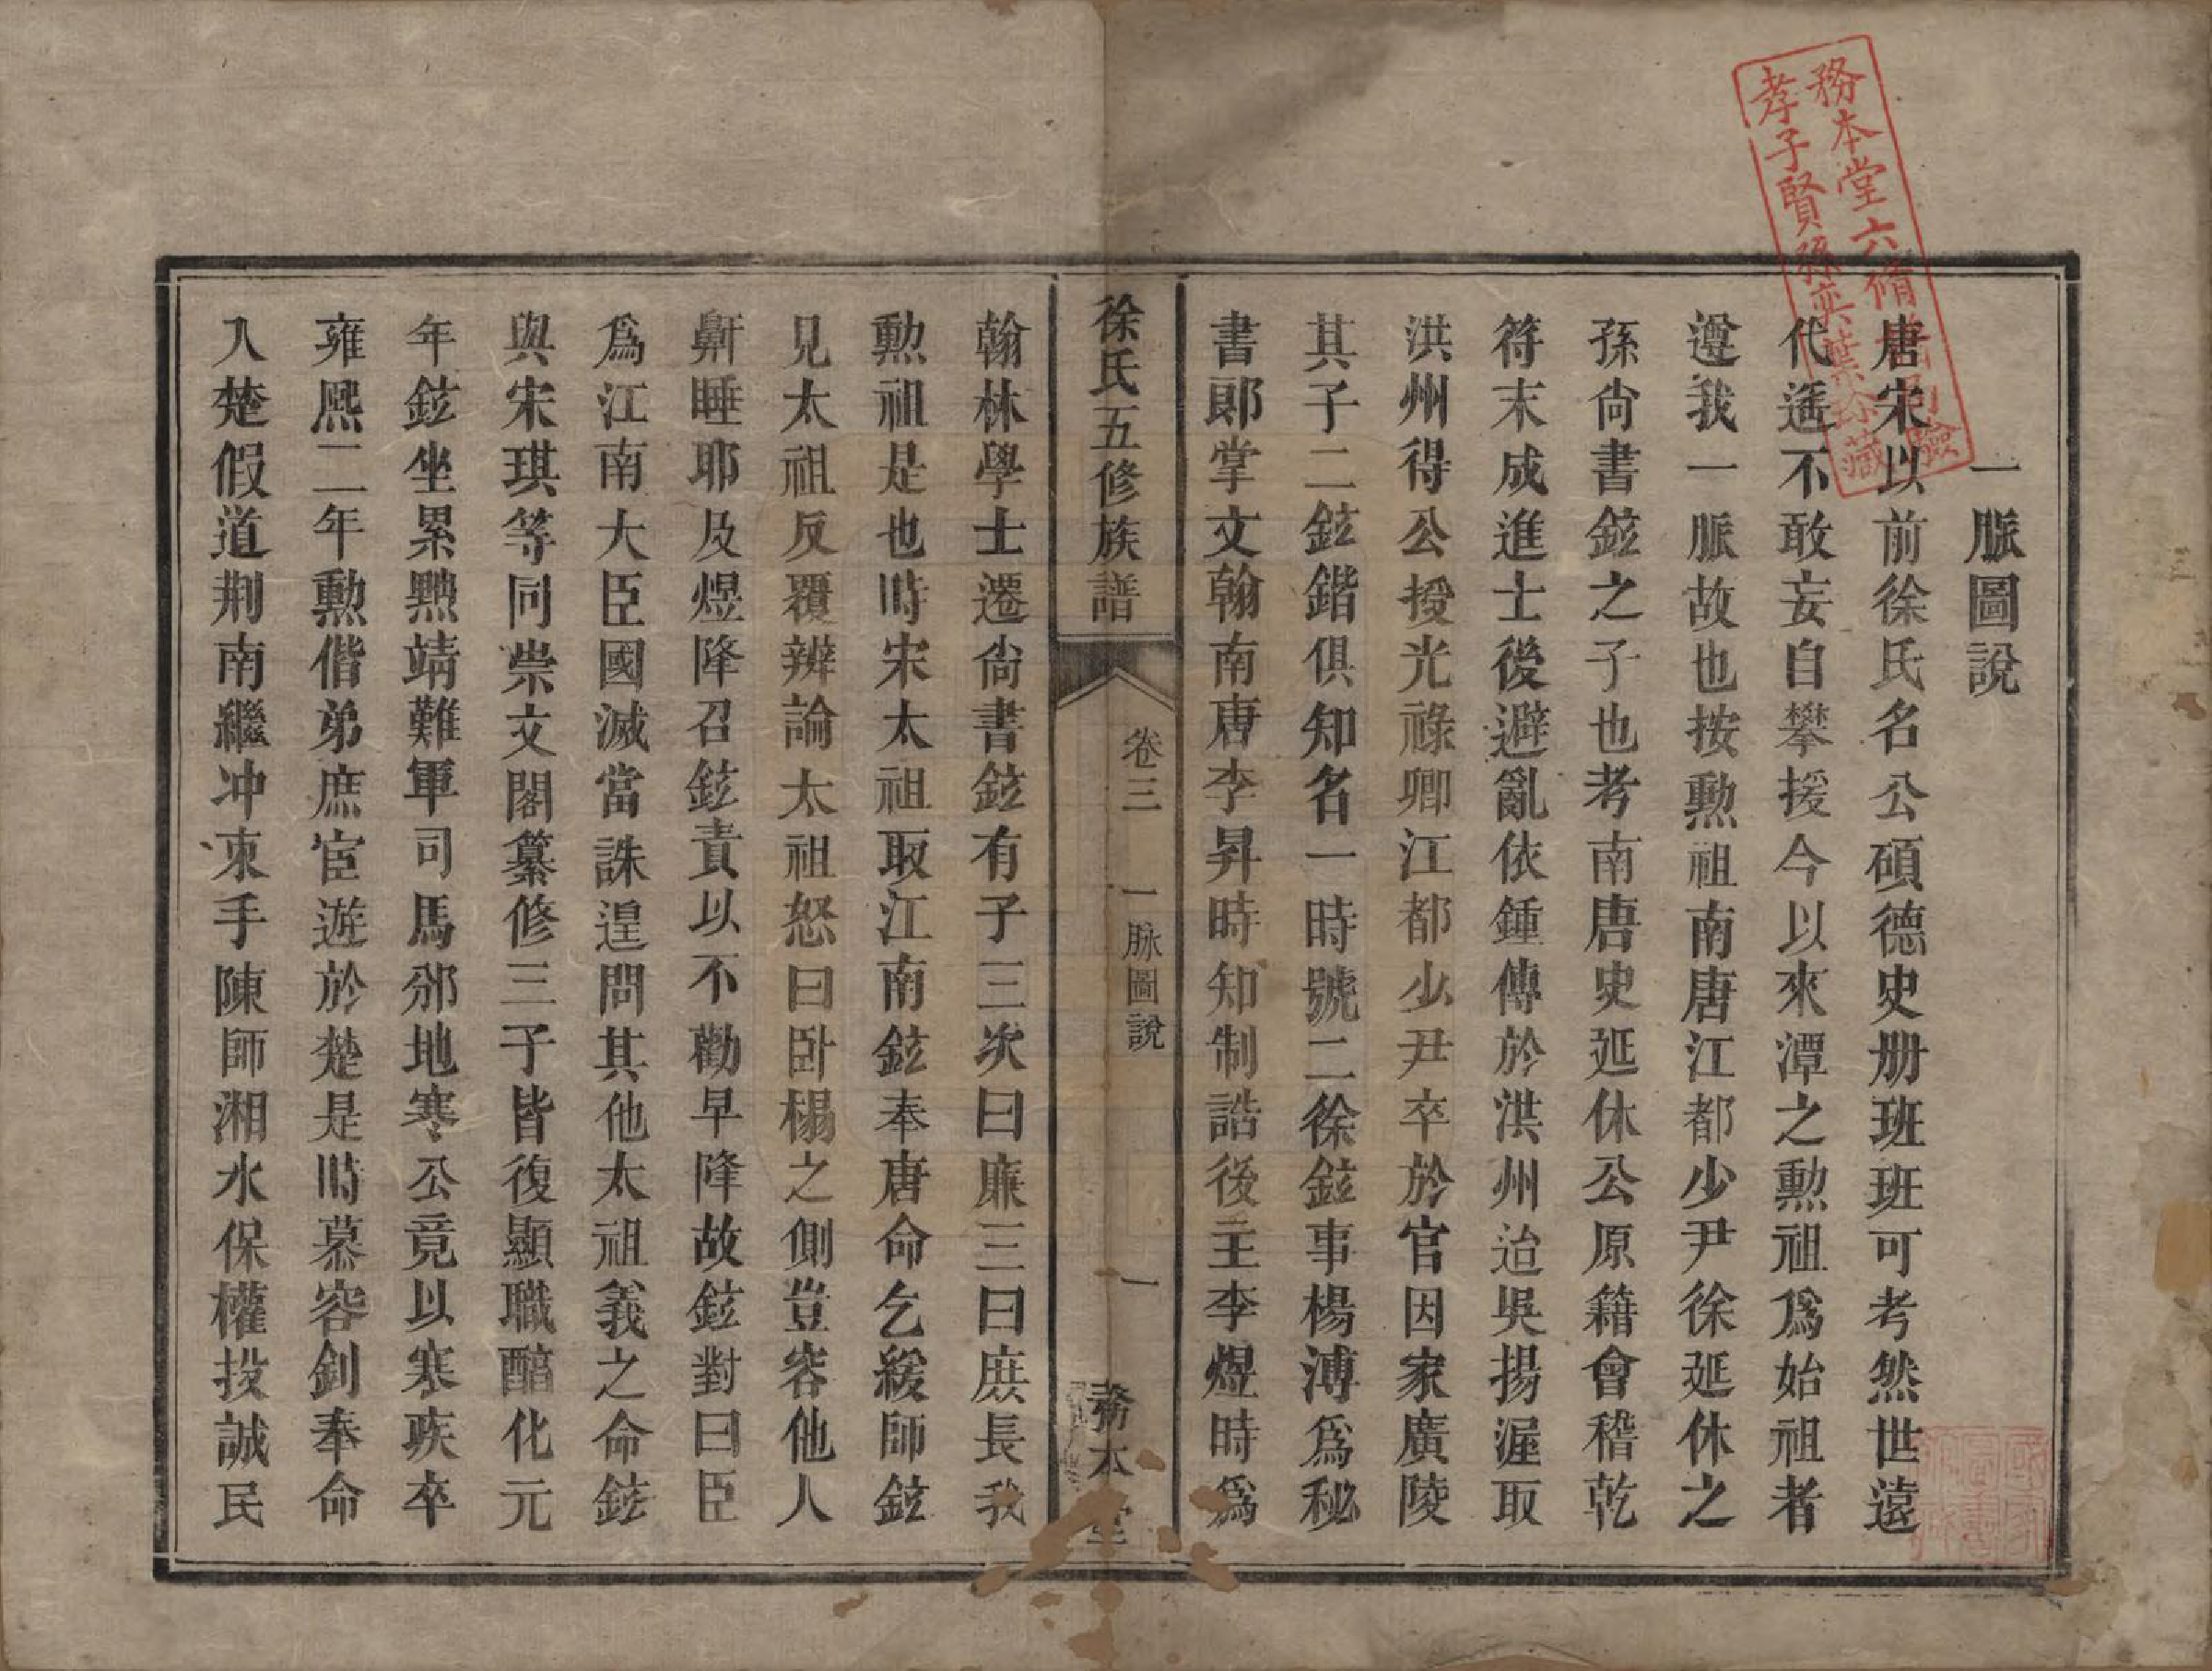 務本堂六脩
孝子賢孫奕葉珍藏
一脈圖說
唐宋以前徐氏名公碩德史册班班可考然世遠
代遙不敢妄自攀援今以來潭之勲祖爲始祖者
遵我一脈故也按勲祖南唐江都少尹徐延休之
孫尙書鉉之子也考南唐史延休公原籍會稽乾
符末成進士後避亂依鍾傳於洪州迨吳揚渥取
洪州得公授光祿卿江都少尹卒於官因家廣陵
其子二鉉鍇俱知名一時號二徐鉉事楊溥爲秘
書郎掌文翰南唐李昇時知制誥後主李煜時爲
徐氏五修族譜
卷三
一脉圖說
一
務本堂
翰林學士遷尙書鉉有子三次曰廉三曰庶長我
勲祖是也時宋太祖取江南鉉奉唐命乞緩師鉉
見太祖反覆辨論太祖怒曰卧榻之側豈容他人
鼾睡耶及煜降召鉉責以不勸早降故鉉對曰臣
爲江南大臣國滅當誅遑問其他太祖義之命鉉
與宋琪等同崇文閣纂修三子皆復顯職醅化元
年鉉坐累黜靖難軍司馬邠地寒公竟以寒疾卒
雍熙二年勲偕弟庶宦遊於楚是時慕容釗奉命
入楚假道荆南繼冲束手陳師湘水保權投誠民